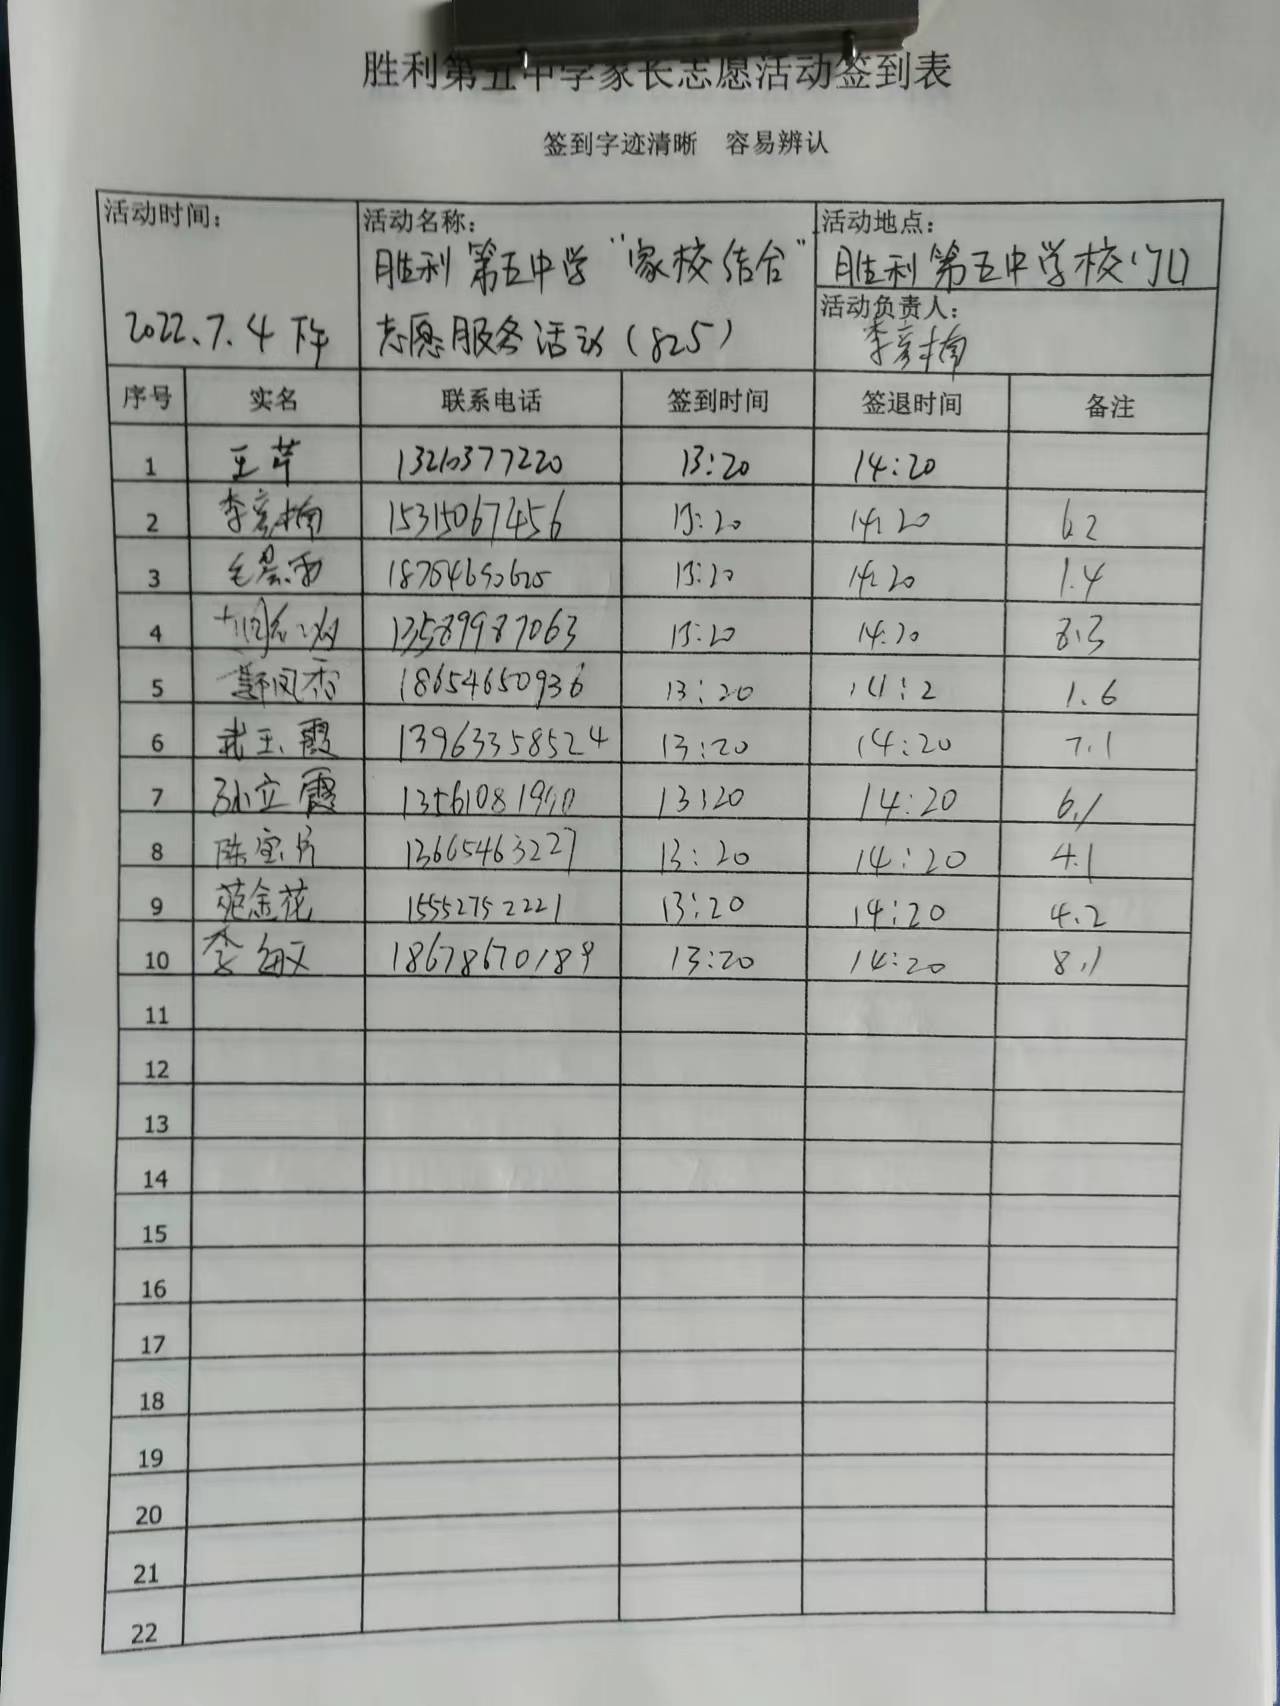 胜利第五中学家长志愿活动签到表
签到字迹清晰 容易辨认
活动时间： 活动名称： 活动地点：
胜利第五中学“家校结合” 胜利第五中学校门口
活动负责人：
2022.7.4下午 志愿服务活动（825） 李彦楠
序号 实名 联系电话 签到时间 签退时间 备注
1 王芹 13210377220 13:20 14:20
2 李彦楠 15315067456 13:20 14:20 6.2
3 13:20 14:20 1.4
4 13589987063 13:20 14:20 8.3
5 18654650936 13:20 14:2 1.6
6 武玉霞 13963358524 13:20 14:20 7.1
7 孙立霞 13:20 14:20 6.1
8 13665463227 13:20 14:20 4.1
9 苑金花 15552752221 13:20 14:20 4.2
10 李敏 18678670189 13:20 14:20 8.1
11
12
13
14
15
16
17
18
19
20
21
22